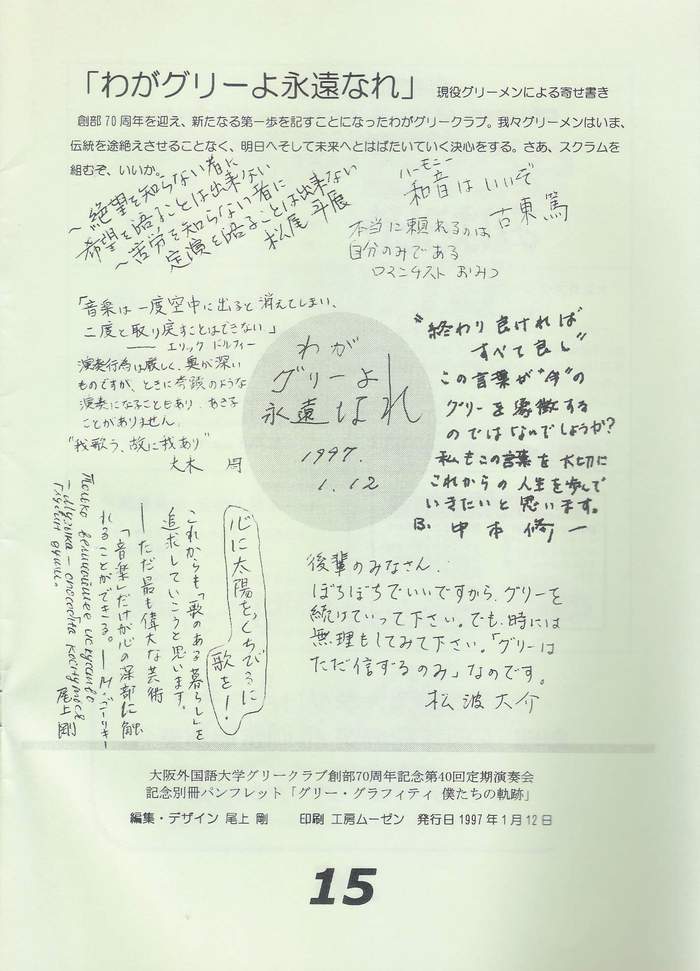 「わがグリーよ永遠なれ」 現役グリーメンによる寄せ書き
創部70周年を迎え、新たなる第一歩を記すことになったわがグリークラブ。我々グリーメンはいま、
伝統を途絶えさせることなく、明日へそして未来へとはばたいていく決心をする。さあ、スクラムを
組むぞ、いいか。
~絶望を知らない者に
希望を語ることは出来ない
~苦労を知らない者に
定演を語ることは出来ない
松尾 斗辰
ハーモニー
和音はいいぞ
古東 篤
本当に頼れるのは
自分のみである
ロマンチスト おみつ
「音楽は一度空中に出ると消えてしまい、
二度と取り戻すことはできない。」
—— エリック ドルフィー
演奏行為は厳しく、奥が深い
ものですが、ときに奇跡のような
演奏になることもあり、あきる
ことがありません。
"我歌う、故に我あり"
大木 周
わが
グリーよ
永遠なれ
1997.
1.12
"終わり良ければ
すべて良し"
この言葉が"今"の
グリーを象徴する
のではないでしょうか?
私もこの言葉を大切に
これからの人生を歩んで
いきたいと思います。
中本 修一
心に太陽を、くちびるに
歌を!
これからも「歌のある暮らし」を
追求していこうと思います。
——ただ最も偉大な芸術
「音楽」だけが心の深部に触
れることができる。——M.ゴーリキー
Только величайшее искусство
— музыка — способна коснуться
глубин души.
尾上 剛
後輩のみなさん.
ぼちぼちでいいですから、グリーを
続けていって下さい。でも、時には
無理もしてみて下さい。「グリーは
ただ信ずるのみ」なのです。
松波 大介
大阪外国語大学グリークラブ創部70周年記念第40回定期演奏会
記念別冊パンフレット「グリー・グラフィティ 僕たちの軌跡」
編集・デザイン 尾上 剛 印刷 工房ムーゼン 発行日1997年1月12日
15